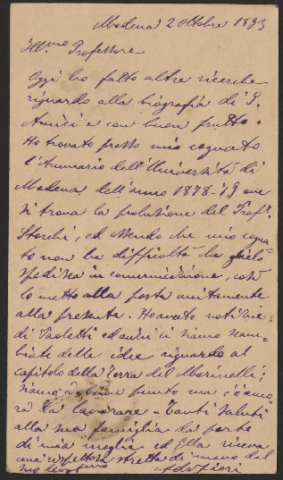 Modena 2 Ottobre 1893
Ill.mo Professore
Oggi ho fatto altre ricerche
riguardo alla biografia di G.
Amici e con buon frutto.
Ho trovato presso mio cognato
l'Annuario dell'Università di
Modena dell'anno 1878-79 ove
si trova la prolusione del Prof.
Storchi, ed essendo che mio cogna
to non ha difficoltà che gliela
spedisca in comunicazione, così
lo metto alla posta unitamente
alla presente. Ho avuto notizie
di Paoletti ed anzi ci siamo scam-
biate delle idee riguardo al
capitolo della Terra del Marinelli;
siamo a buon punto ma c'è anco
ra da lavorare. Tanti saluti
alla sua famiglia da parte
di mia moglie ed Ella riceva
una rispettosa stretta di mano dal
suo